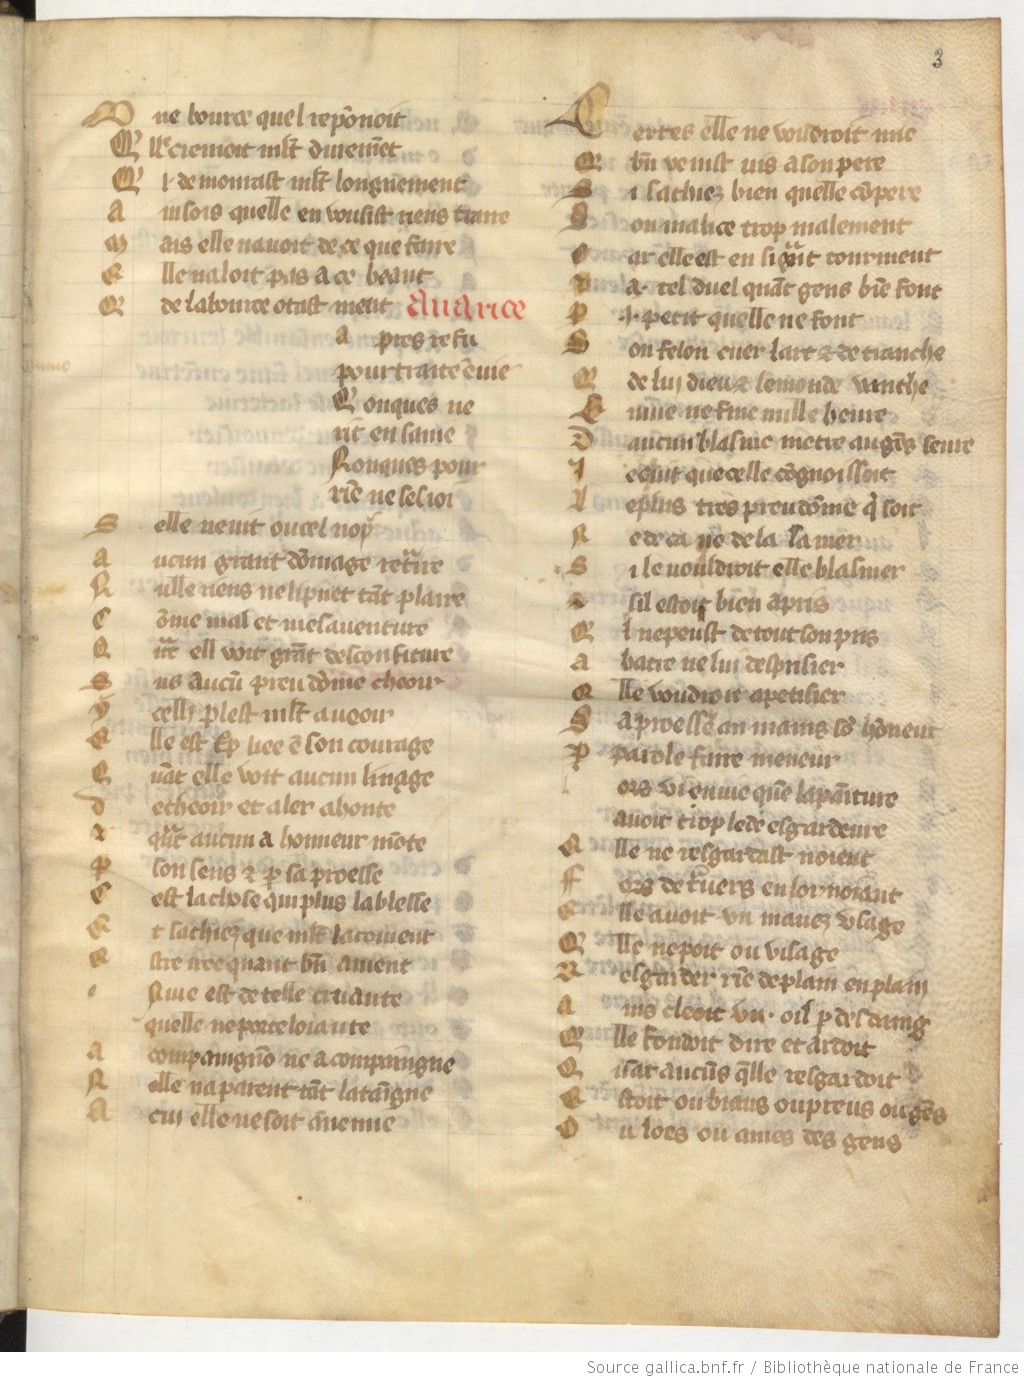 3
U ne bource quel reponoit
Et se cremoit mlt durement
Et demorast mlt longuement
A insois quelle en vousist riens traire
M ais elle navoit de ce que faire
E lle naloit pas a ce beant
Q de la bource otast nient Avarice
A pres refu
pourtraite envie
Q onques ne
rit en sa vie
N onques pour
rien ne sesioi
S elle ne vit ou cel noy
A ucun grant domage retraire
N ulle riens ne li puet tant plaire
C ome mal et mesaventure
Q ant ell voit grant desconfiture
S us aucun preudome cheoir
y celly plest mlt a veoir
E lle est trop liee en son courage
Q uant elle voit aucun linage
d echeoir et aler a honte
Et quant aucun a honneur monte
P son sens et par sa proesse
C est la chose qui plus la blesse
E t sachiez que mlt la tonvient
E stre iree quant bien avient
Envie est de telle cruaute
quelle ne porte loiaute
A compaingnon ne a compaingne
N elle na parent tant la taingne
A cuy elle ne soit anemie
C ertes elle ne voudroit mie
Q bien venist nis a son pere
M
S i sachiez bien quelle compere
S on malice trop malement
C ar elle est en si grant tourment
Et a tel duel quant gens bien font
P ar i petit quelle ne font
S on felon cuer lart et detranche
Q de luy dieu et le monde vanche
E nvie ne fine nulle heure
D aucun blasme metre au gens seure
I e cuit que celle cognoissoit
L e plus tres preudome qui soit
N e de ca ne de la la mer
S i le vouldroit elle blasmer
Et sil estoit bien apris
Q l ne peust de tout son pris
A batre ne lui desprisier
E lle voudroit apetisier
S a proesse au mains son honneur
P parole faire meneur
Lors vi envie que la painture
avoit trop lede esgardeure
E lle ne resgardast noient
F ors de travers en bornoiant
E lle avoit un mauvez usage
Q lle ne poit ou visage
R esgarder rien de plain en plain
A ins cleoit un oil par desdaing
Q lle fondoit dire et ardoit
Q uant aucuns quelle resgardoit
E stoit ou biaus ou preus ou gens
O u loes ou ames des gens
Source gallica.bnf.fr / Bibliothèque nationale de France